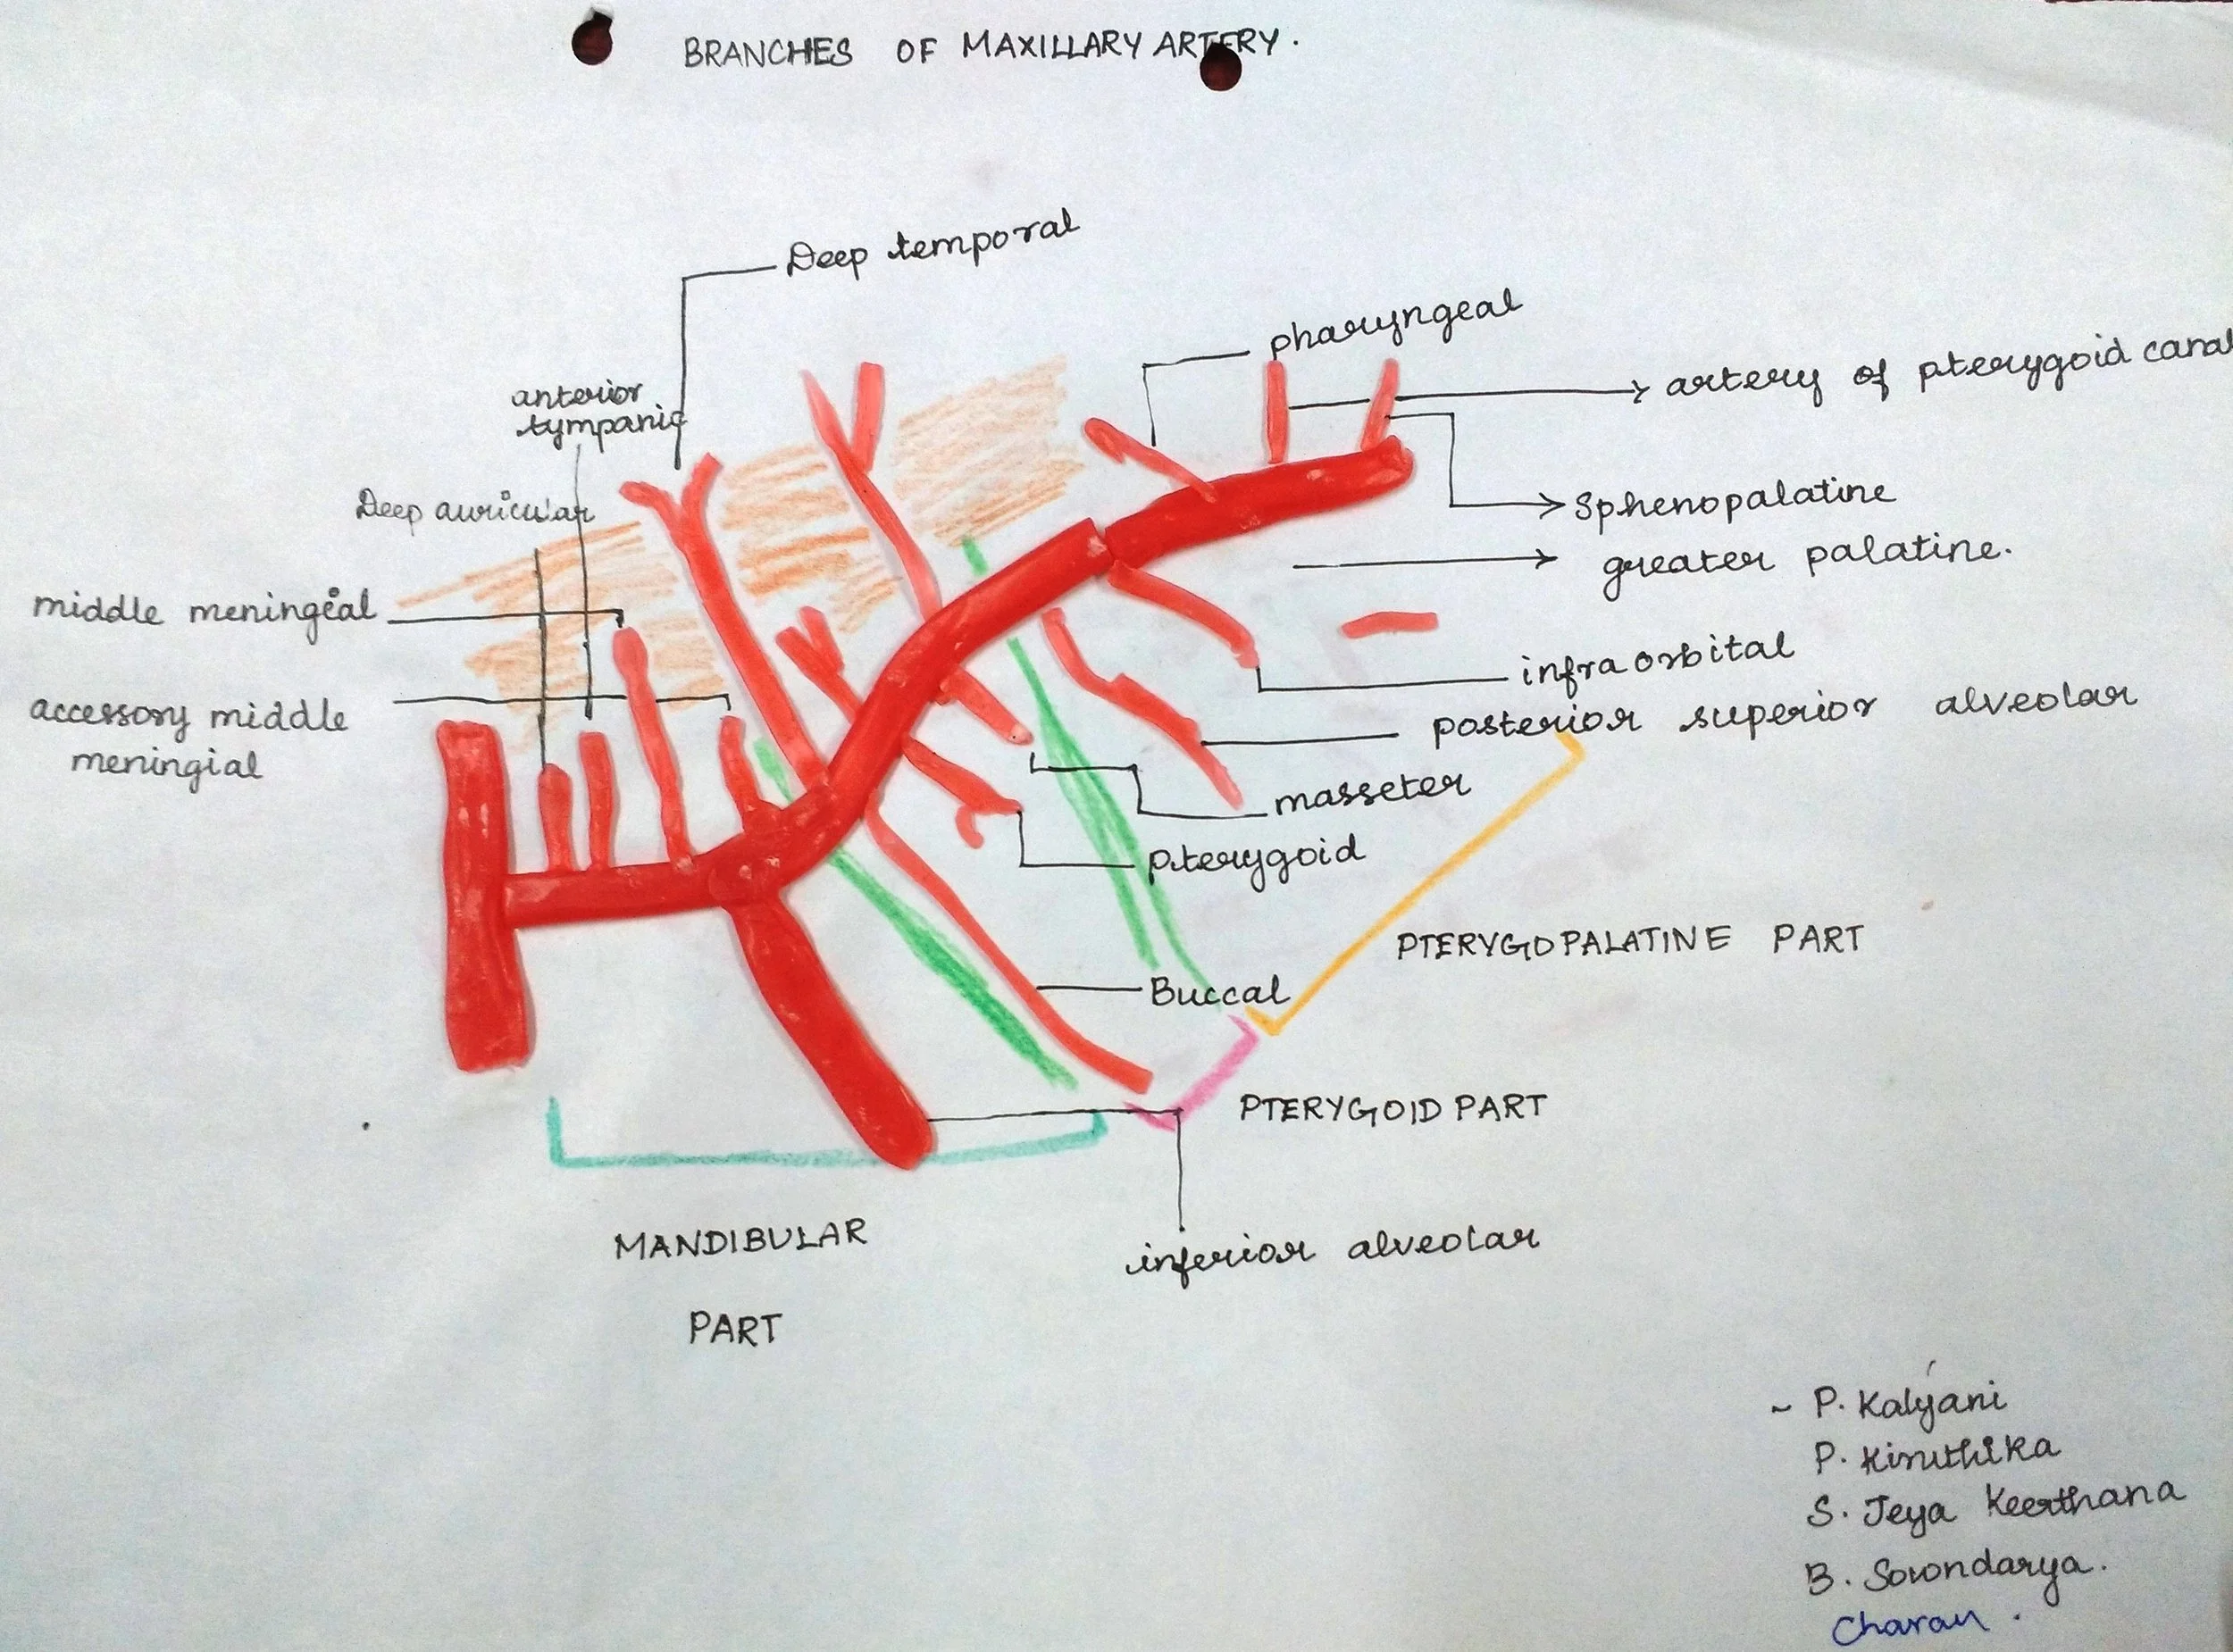 BRANCHES OF MAXILLARY ARTERY.
Deep temporal
pharyngeal
artery of pterygoid canal
anterior
tympanic
Deep auricular
Sphenopalatine
greater palatine.
middle meningeal
infra orbital
accessory middle
meningial
posterior superior alveolar
masseter
pterygoid
PTERYGOPALATINE PART
Buccal
PTERYGOID PART
MANDIBULAR
PART
inferior alveolar
~ P. Kalyani
P. Kiruthika
S. Jeya Keerthana
B. Sowndarya.
Charan.